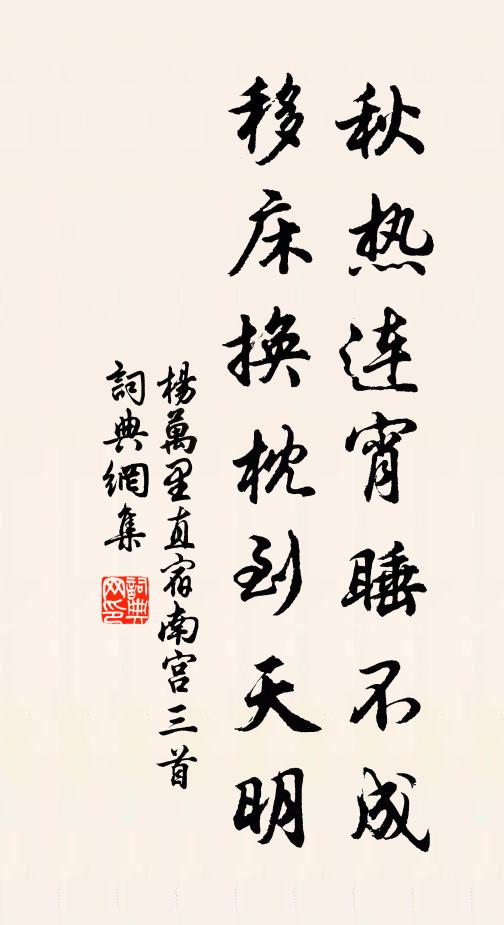 秋热连宵睡不成
移床换枕到天明
楊萬里直宿南宫三首
詞典網集
詞典网印